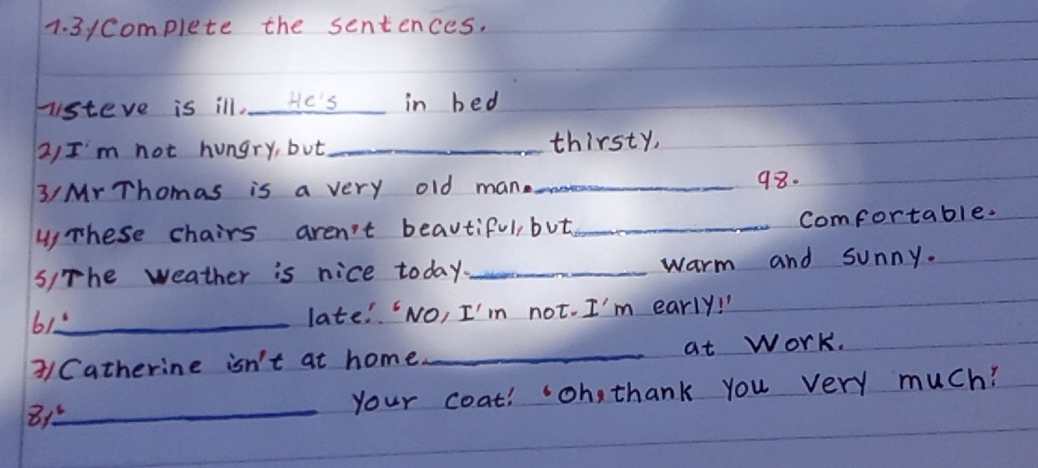 1.3/Complete the sentences.
1/Steve is ill. He's in bed
2/I'm not hungry, but __________ thirsty.
3/Mr Thomas is a very old man. __________ 98.
4/These chairs aren't beautiful, but __________ comfortable.
5/The weather is nice today. __________ warm and sunny.
6/'__________ late.' 'No, I'm not. I'm early!'
7/Catherine isn't at home. __________ at work.
8/'__________ your coat.' 'Oh, thank you very much.'